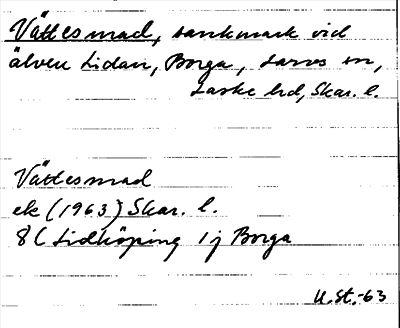 Vättesmad, sankmark vid
älven Lidan, Borga, Larvs sn,
Laske hd, Skar. l.
Vättesmad
ek (1963) Skar. l.
8C Lidköping 1j Borga
U.St.-63